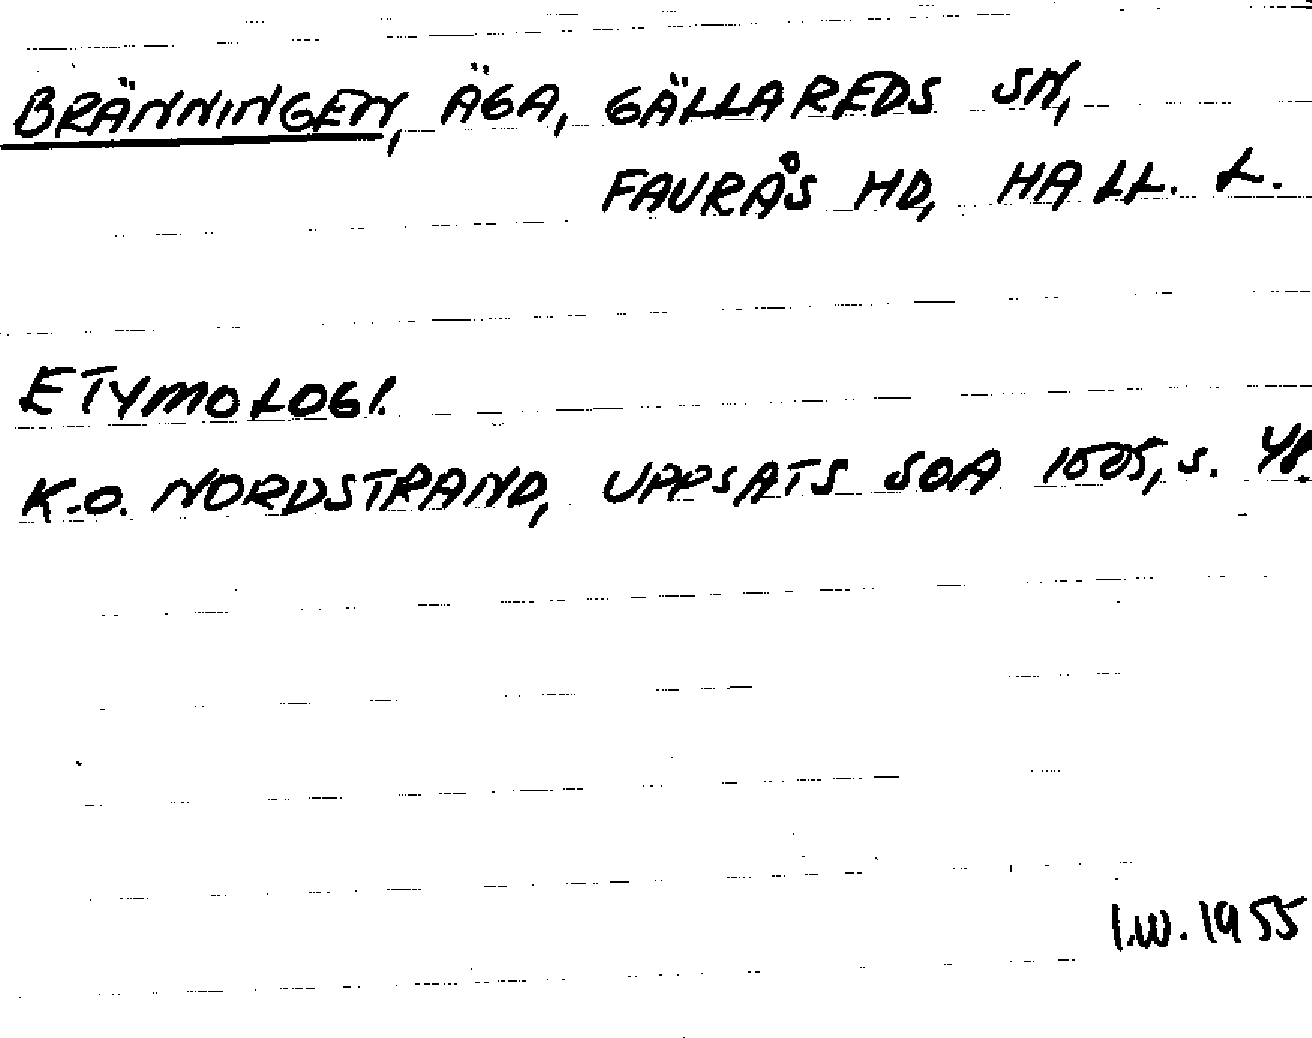 BRÄNNINGEN, ÄGA, GÄLLAREDS SN,
FAURÅS HD, HALL. L.
ETYMOLOGI.
K.O. NORDSTRAND, UPPSATS SOA 1505, s. 48.
I.W. 1955